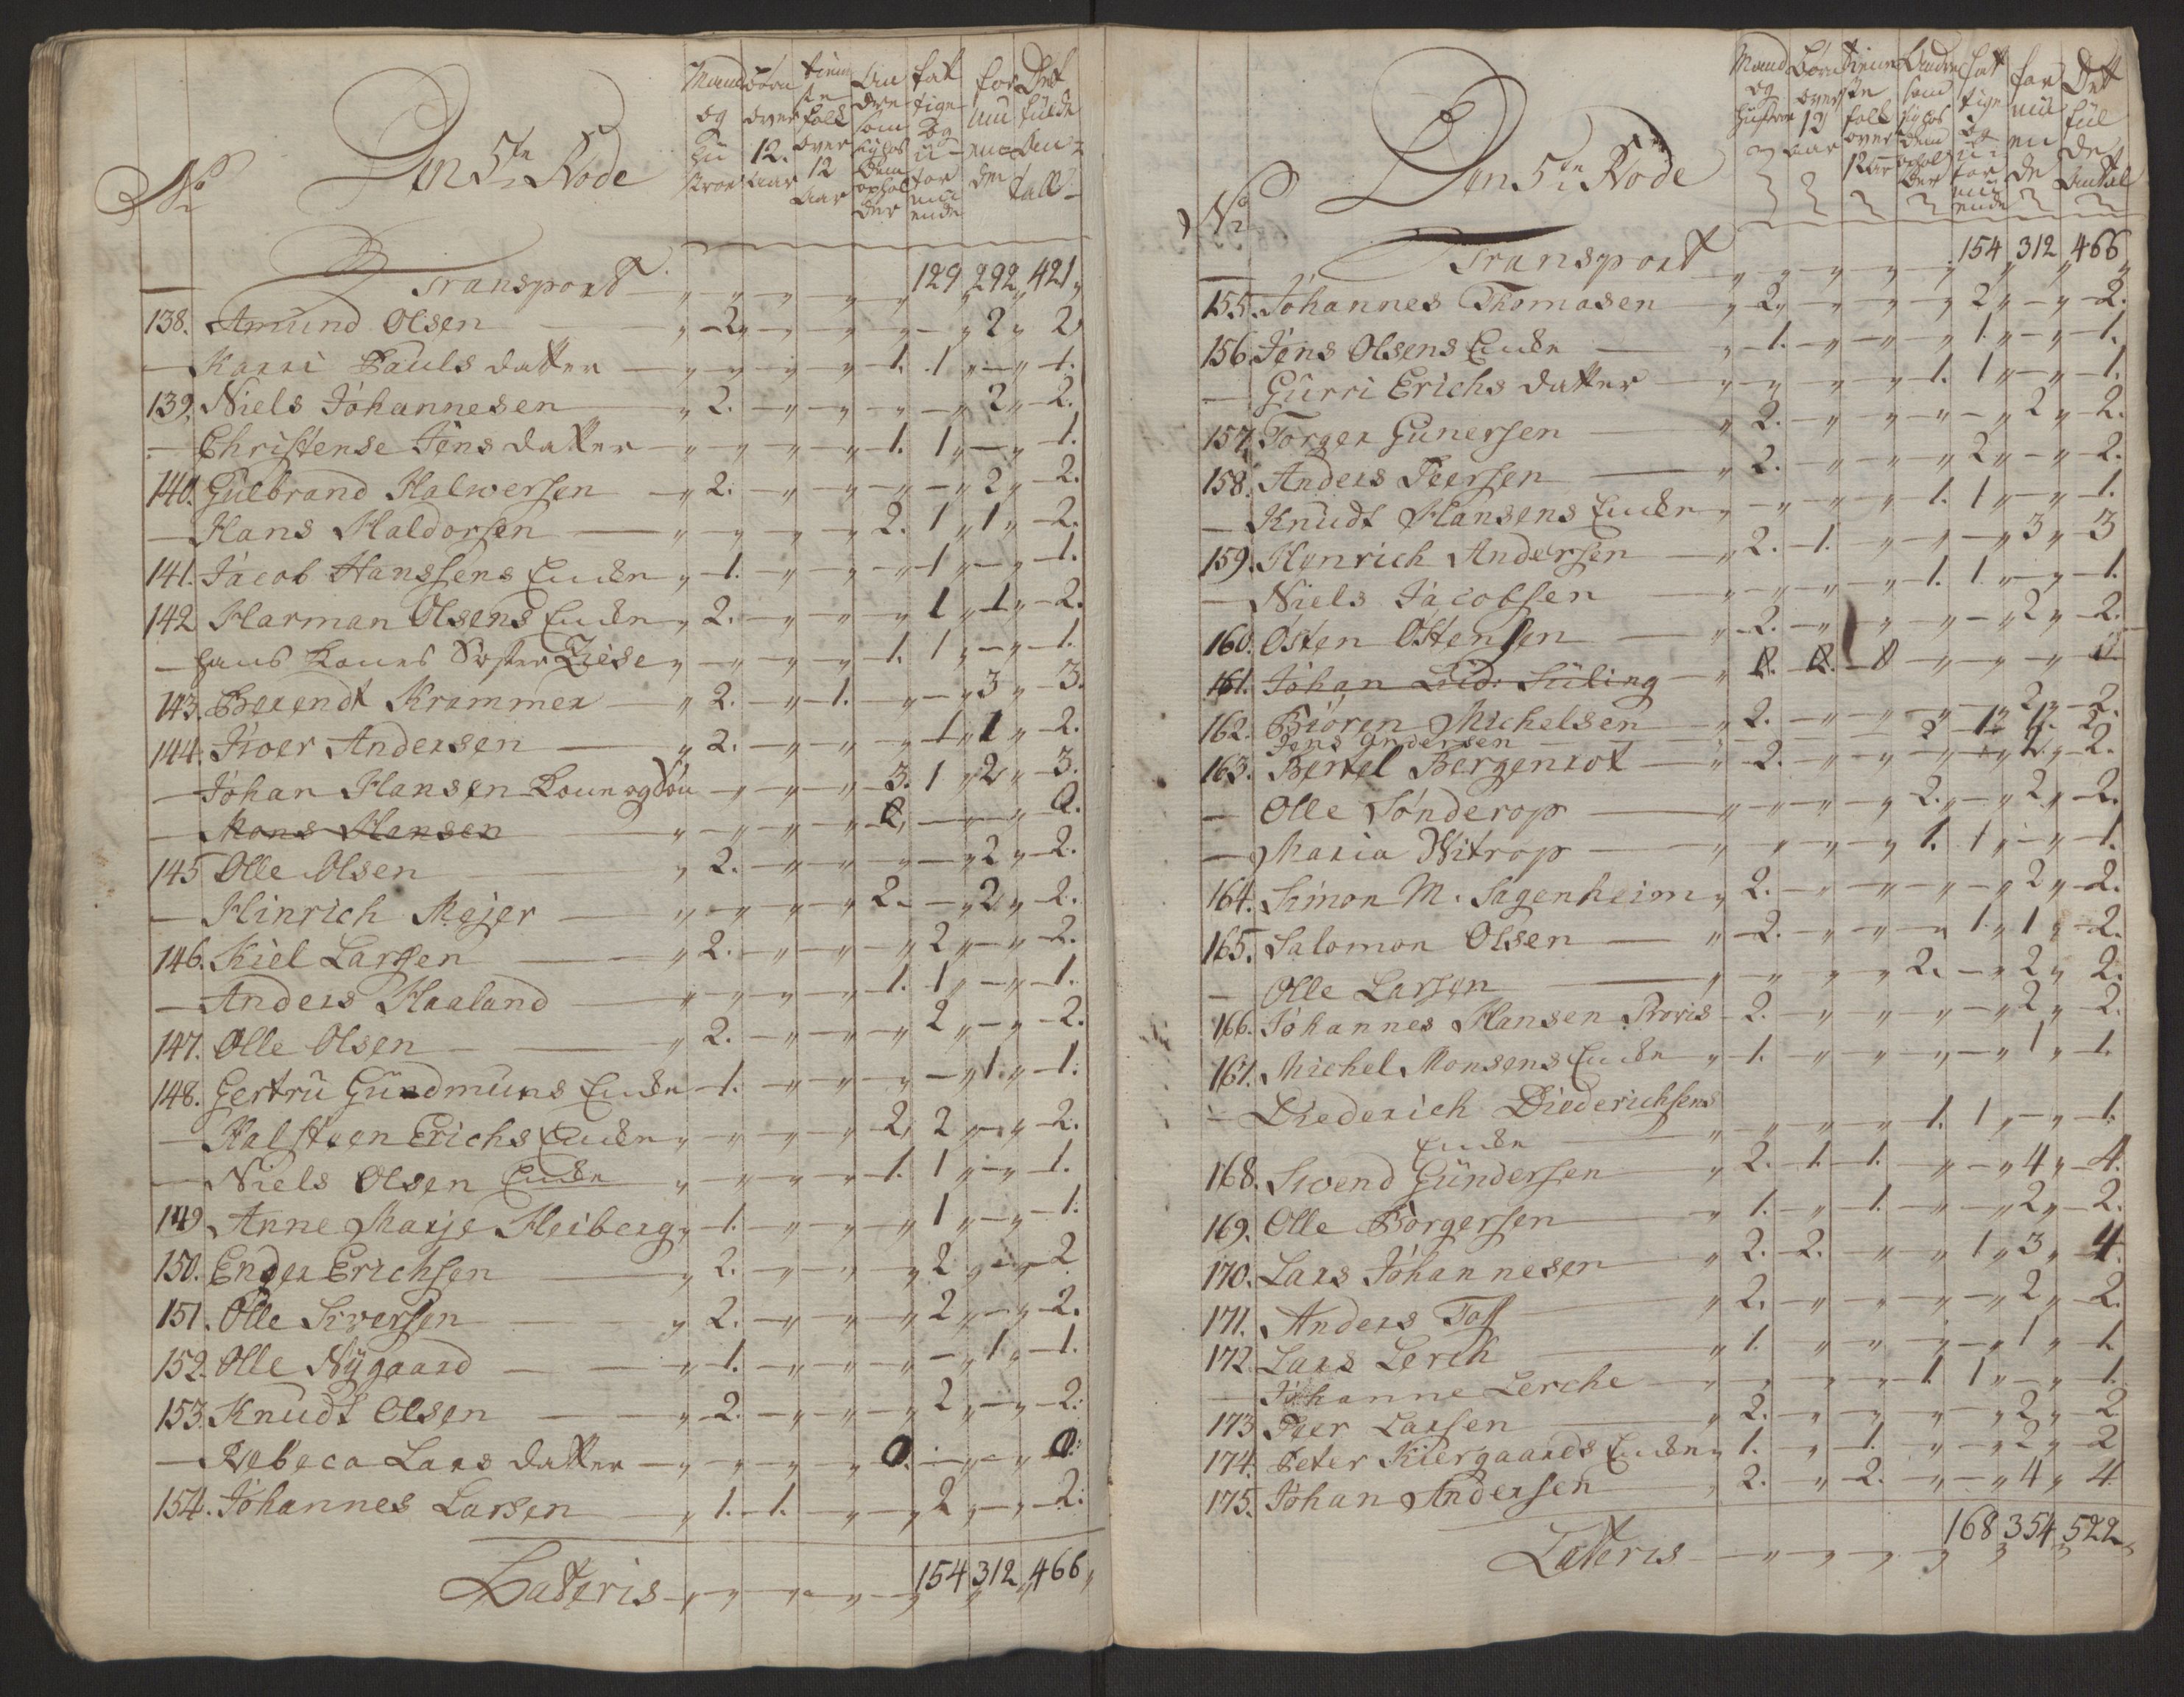 No
Den 5te Rode
Mand og Hustroe
Børn over 12. aar
tieniste folk over 12 aar
Andre som hylos dem opholder
fattige og uformuende
formuende
Det fulde Antall
Transport 129 292 421
138. Amund Olsen 2 2 2
Karri Pauls datter 1. 1 1.
139. Niels Johannesen 2. 2 2.
Christense Jens datter 1. 1 1.
140. Gulbrand Halwersen 2. 2 2.
Hans Haldorsen 2. 1 1 2.
141. Jacob Hanssens Encke 1. 1 1.
142 Harman Olsens Encke 2. 1 1 2.
hans Kones Søster Zise 1. 1 1.
143. Berendt Krammer 2. 1. 3 3.
144. Iwer Andersen 2. 1 1 2.
Johan Hansen Kone og Søn 3. 1 2 3.
Mons Hansen 0 0.
145 Olle Olsen 2. 2 2.
Hinrich Mejer 2. 2 2.
146. Kiel Larsen 2. 2 2.
Anders Haaland 1. 1 1.
147. Olle Olsen 2. 2 2.
148. Gertru Gundmuns Encke 1. 1. 1.
Halsteen Erichs Encke 2. 2 2.
Niels Olsen Encke 1. 1 1.
149 Anne Marje Heiberg 1. 1 1.
150. Enger Erichsen 2. 2 2
151. Olle Siversen 2. 2 2.
152. Olle Nygaard 1. 1 1.
153. Knudt Olsen 2. 2 2.
Rebeca Lars datter 0. 0.
154. Johannes Larsen 1. 1. 2 2.
Lateris 154 312 466
No
Den 5te Rode
Mand og Hustroe
Børn over 12 aar
tieniste folk over 12 aar
Andre som hylos dem opholder
fattige og uformuende
formuende
Det fulde Antal
Transport 154 312 466
155. Johannes Thomasen 2. 2 2.
156. Jens Olsens Encke 1. 1. 1.
Gurri Erichs datter 1. 1 1.
157. Torger Gunersen 2. 2 2.
158. Anders Peersen 2. 2 2.
Knudt Hansens Encke 1. 1 1.
159. Henrich Andersen 2. 1. 3 3
Niels Jacobsen 1. 1. 1.
160. Østen Østensen 2. 2 2.
161. Johan Lid: Süling 0. 0. 0 0
162. Biören Michelsen 2. 2 2.
Jens Andersen 2 1 1. 2
163. Bertel Bergenrot 2. 2 2.
Olle Sønderop 2. 2 2.
Maria Witrop 1. 1 1.
164. Simon M. Sagenheim 2. 2 2.
165. Salomon Olsen 2. 1 1 2.
Olle Larsen 2. 2 2.
166. Johannes Hansen Roris 2. 2 2.
167. Michel Monsens Encke 1. 1 1.
Diederich Diederichsens
Encke 1. 1 1.
168. Swend Gündersen 2. 1. 1. 4 4.
169. Olle Borgersen 1. 1. 2 2.
170. Lars Johannesen 2. 2. 1 3 4.
171. Anders Toff 2. 2 2.
172. Lars Lerch 1. 1 1.
Johanne Lerche 1 1 1.
173 Peer Larsen 2. 2 2
174. Peter Kiergaards Encke 1. 1. 2 2
175. Johan Andersen 2. 2. 4 4
Lateris 168 354 522